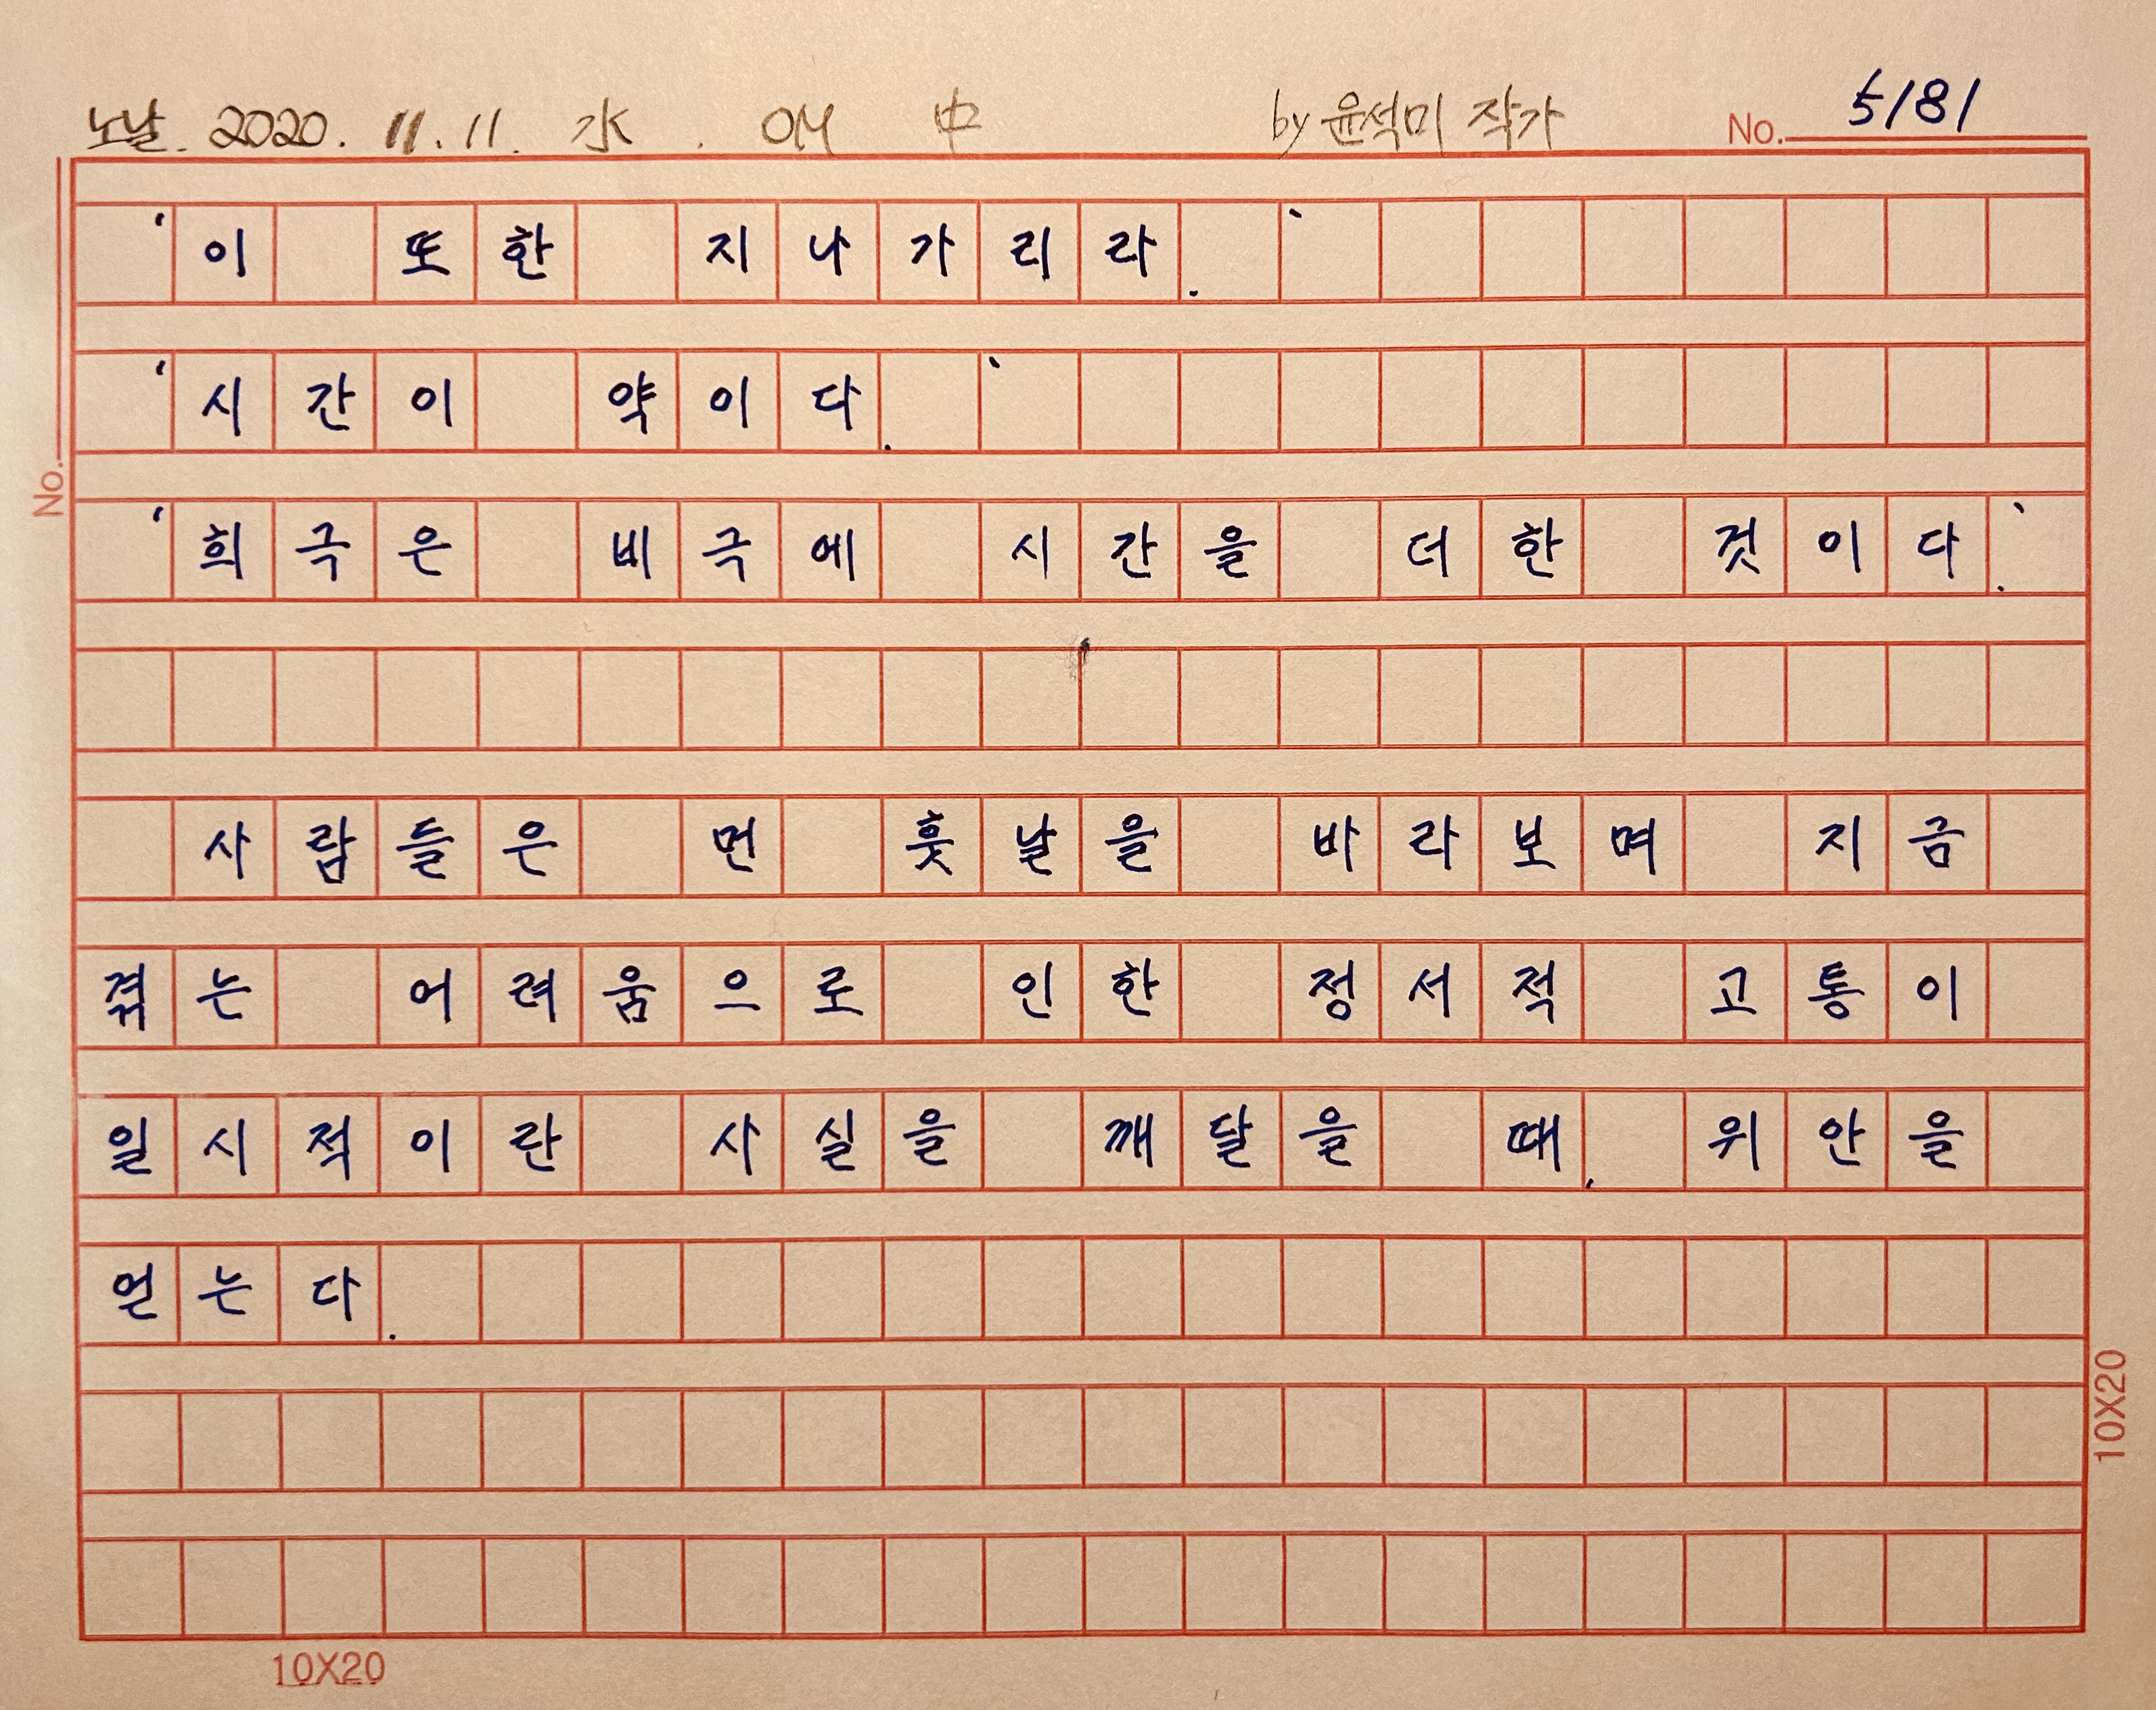 노날. 2020. 11. 11. 水. OM 中 by 윤석미 작가 No. 5181
'이 또한 지나가리라.'
'시간이 약이다.'
'희극은 비극에 시간을 더한 것이다.'
사람들은 먼 훗날을 바라보며 지금
겪는 어려움으로 인한 정서적 고통이
일시적이란 사실을 깨달을 때, 위안을
얻는다.
No.
10X20
10X20